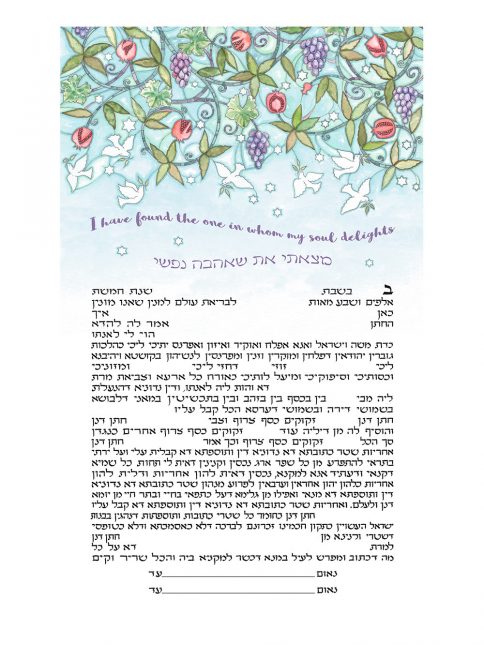 I have found the one in whom my soul delights
מצאתי את שאהבה נפשי
ב בשבת שנת חמשת
אלפים ושבע מאות לבריאת עולם למנין שאנו מונין
כאן איך
החתן אמר לה להדא
הוי לי לאנתו
כדת משה וישראל ואנא אפלח ואוקיר ואיזון ואפרנס יתיכי ליכי כהלכות
גוברין יהודאין דפלחין ומוקרין וזנין ומפרנסין לנשיהון בקושטא ויהיבנא
ליכי זוזי דחזי ליכי ומזוניכי
וכסותיכי וסיפוקיכי ומיעל לותיכי כאורח כל ארעא וצביאת מרת
דא והות ליה לאנתו, ודין נדוניא דהנעלת
ליה מבי בין בכסף בין בזהב ובין בתכשיטין במאני דלבושא
בשמושי דירה ובשמושי דערסא הכל קבל עליו
חתן דנן זקוקים כסף צרוף וצבי חתן דנן
והוסיף לה מן דיליה עוד זקוקים כסף צרוף אחרים כנגדן
סך הכל זקוקים כסף צרוף וכך אמר חתן דנן
אחריות שטר כתובתא דא נדוניא דין ותוספתא דא קבלית עלי ועל ירתי
בתראי להתפרע מן כל שפר ארג נכסין וקנינין דאית לי תחות כל שמיא
דקנאי ודעתיד אנא למקנא, נכסין דאית להון אחריות ודלית להון
אחריות כלהון יהון אחראין וערבאין לפרוע מנהון שטר כתובתא דא נדוניא
דין ותוספתא דא מנאי ואפילו מן גלימא דעל כתפאי בחיי ובתר חיי מן יומא
דנן ולעלם, ואחריות שטר כתובתא דא נדוניא דין ותוספתא דא קבל עליו
חתן דנן כחומר כל שטרי כתובות ותוספתות דנהגין בבנות
ישראל העשויין כתקון חכמינו זכרונם לברכה דלא כאסמכתא ודלא כטופסי
דשטרי וקנינא מן חתן דנן
למרת דא על כל
מה דכתוב ומפרש לעיל במנא דכשר למקניא ביה והכל שריר וקים
נאום עד
נאום עד